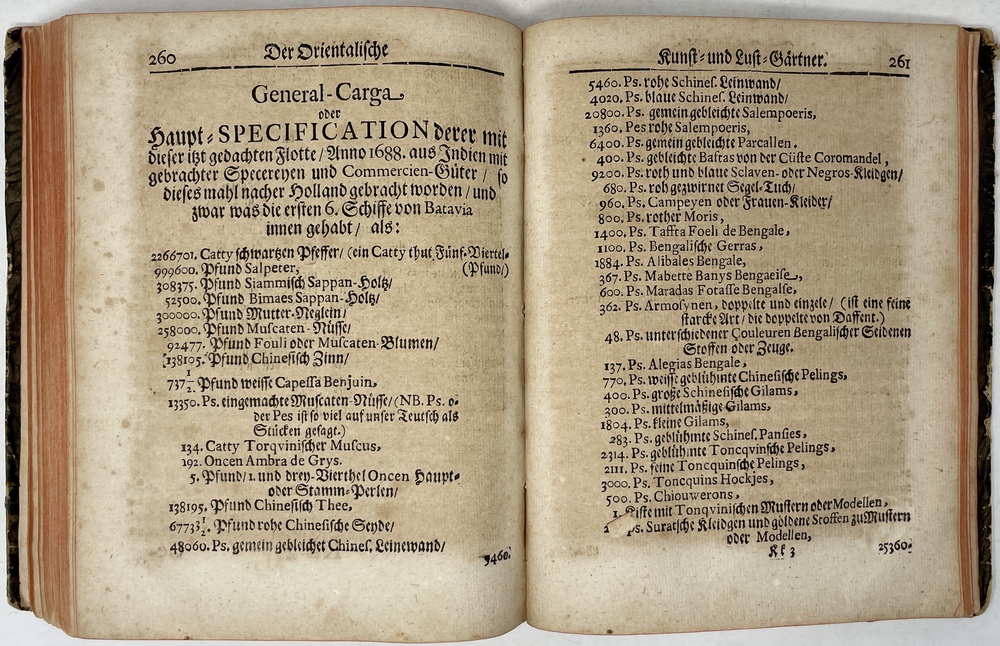 260 Der Orientalische
General-Carga
oder
Haupt-SPECIFICATION derer mit
dieser itzt gedachten Flotte/ Anno 1688. aus Indien mit
gebrachter Specereyen und Commercien-Güter/ so
dieses mahl nacher Holland gebracht worden/ und
zwar was die ersten 6. Schiffe von Batavia
innen gehabt/ als:
2266701. Catty schwartzen Pfeffer/ (ein Catty thut Fünf-Viertel-
999600. Pfund Salpeter, (Pfund/)
308375. Pfund Siammisch Sappan-Holtz/
52500. Pfund Bimaes Sappan-Holtz/
300000. Pfund Mutter-Neglein/
258000. Pfund Muscaten-Nüsse/
92477. Pfund Fouli oder Muscaten-Blumen/
138105. Pfund Chinesisch Zinn/
737 1/2. Pfund weisse Capessa Benjuin,
13350. Ps. eingemachte Muscaten-Nüsse/ (NB. Ps. o-
der Pes ist so viel auf unser Teutsch als
Stücken gesagt.)
134. Catty Torqvinischer Muscus,
192. Oncen Ambra de Grys.
5. Pfund/ 1. und drey-Vierthel Oncen Haupt-
oder Stamm-Perlen/
138195. Pfund Chinesisch Thee,
67733 1/2. Pfund rohe Chinesische Seyde/
48060. Ps. gemein gebleichet Chines. Leinewand/
5460.
Kunst- und Lust-Gärtner. 261
5460. Ps. rohe Schines. Leinwand/
4020. Ps. blaue Schines. Leinwand/
20800. Ps. gemein gebleichte Salempoeris,
1360. Pes rohe Salempoeris,
6400. Ps. gemein gebleichte Parcallen.
400. Ps. gebleichte Baftas von der Cüste Coromandel,
9200. Ps. roth und blaue Sclaven- oder Negros-Kleidgen/
680. Ps. roh gezwirnet Segel-Tuch/
960. Ps. Campeyen oder Frauen-Kleider/
800. Ps. rother Moris,
1400. Ps. Taffta Foeli de Bengale,
1100. Ps. Bengalische Gerras,
1884. Ps. Alibales Bengale,
367. Ps. Mabette Banys Bengaeise,
600. Ps. Maradas Fotasse Bengalse,
362. Ps. Armosynen, doppelte und einzele/ (ist eine feine
starcke Art/ die doppelte von Daffent.)
48. Ps. unterschiedener Couleuren Bengalischer Seidenen
Stoffen oder Zeuge.
137. Ps. Alegias Bengale,
770. Ps. weisse geblühmte Chinesische Pelings,
400. Ps. große Schinesische Gilams,
300. Ps. mittelmäßige Gilams,
1804. Ps. kleine Gilams,
283. Ps. geblühmte Schines. Pansies,
2314. Ps. geblühmte Toncqvinsche Pelings,
2111. Ps. feine Toncquinsche Pelings,
3000. Ps. Toncquins Hockjes,
500. Ps. Chiouwerons,
1. Kiste mit Tonqvinischen Mustern oder Modellen,
Ps. Suratsche Kleidgen und göldene Stoffen zu Mustern
oder Modellen,
Kk 3 25360.